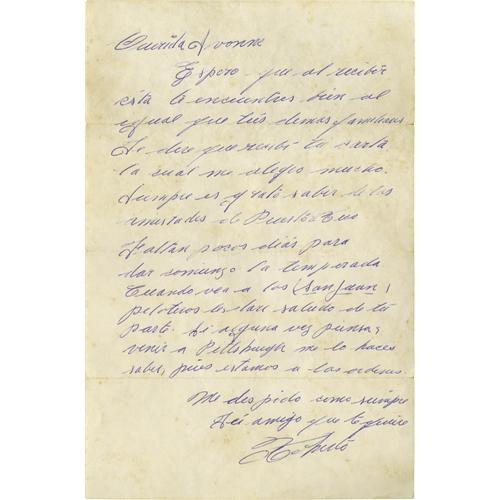 Querida Ivonne
Espero que al recibir
esta te encuentres bien al
igual que tús demas familiares
Te dire que recibí tu carta
la cual me alegro mucho.
Siempre es grato saber de las
amistades de Puerto Rico
Faltan pocos días para
dar comienzo la temporada
Cuando vea a los (San Juan)
peloteros les dare saludo de tu
parte. Si alguna vez piensas
venir a Pittsburgh me lo haces
saber, pues estamos a las ordenes.
Me despido como siempre
tú amigo que te quiere
Roberto